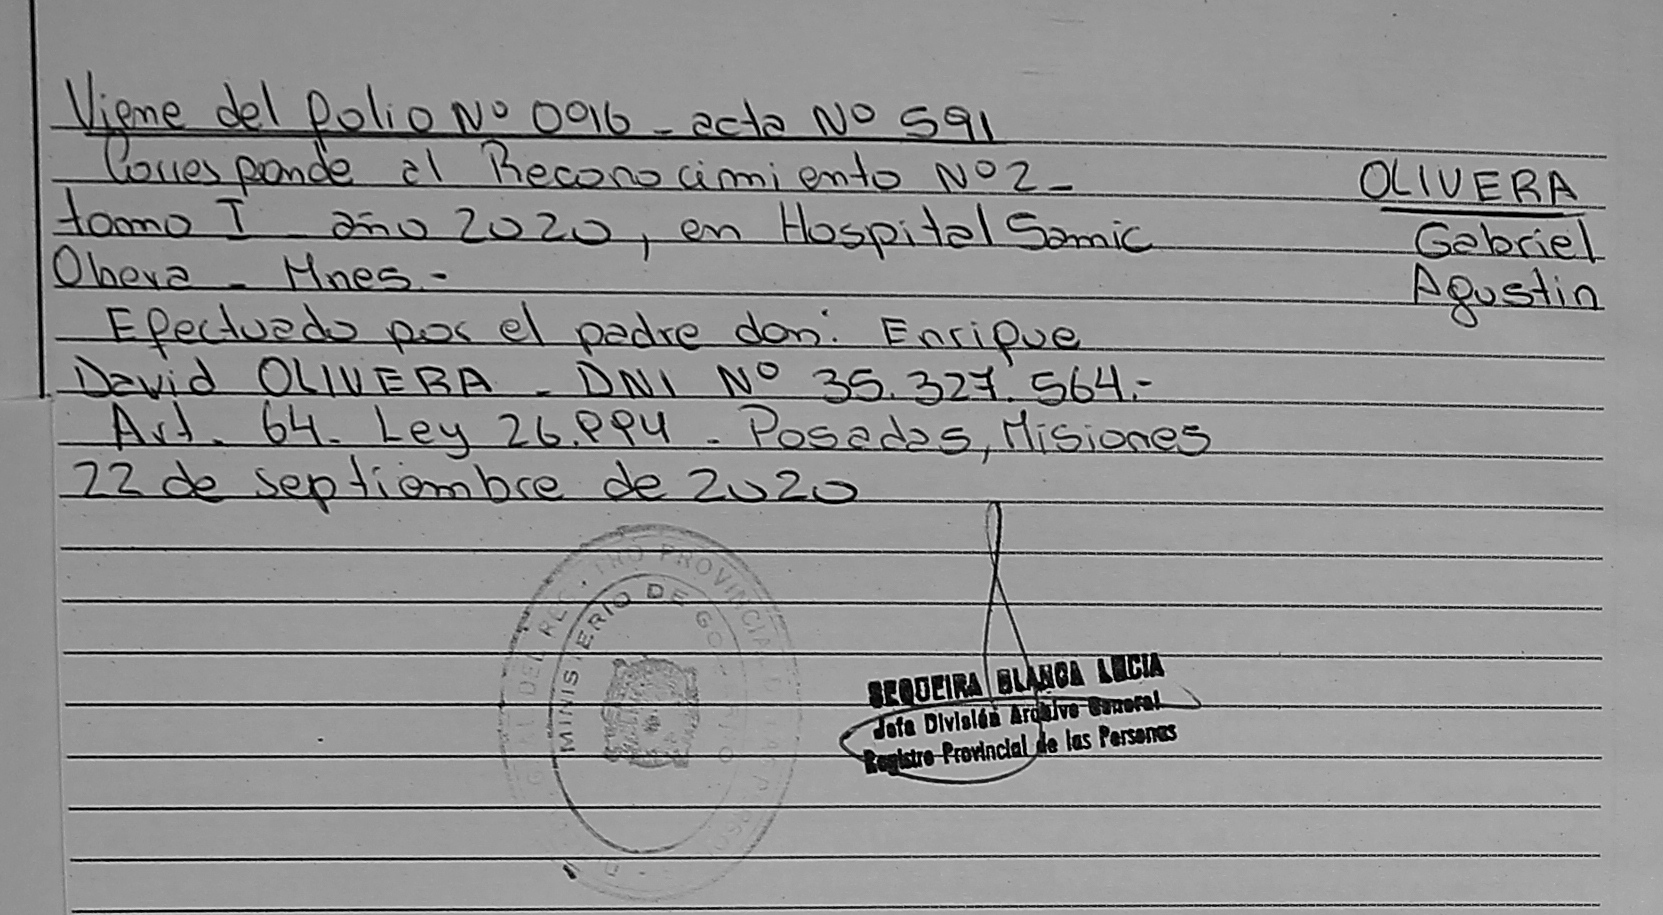 Viene del folio Nº 0916 - acta Nº 591
Corresponde al Reconocimiento Nº 2 -
tomo I - año 2020, en Hospital Samic
Obera - Mnes.-
Efectuado por el padre don: Enrique
David OLIVERA - DNI Nº 35.327.564.-
Art. 64. Ley 26.994 - Posadas, Misiones
22 de septiembre de 2020
OLIVERA
Gabriel
Agustin
MINISTERIO DE GOBIERNO
SEQUEIRA BLANCA LUCIA
Jefa División Archivo General
Registro Provincial de las Personas